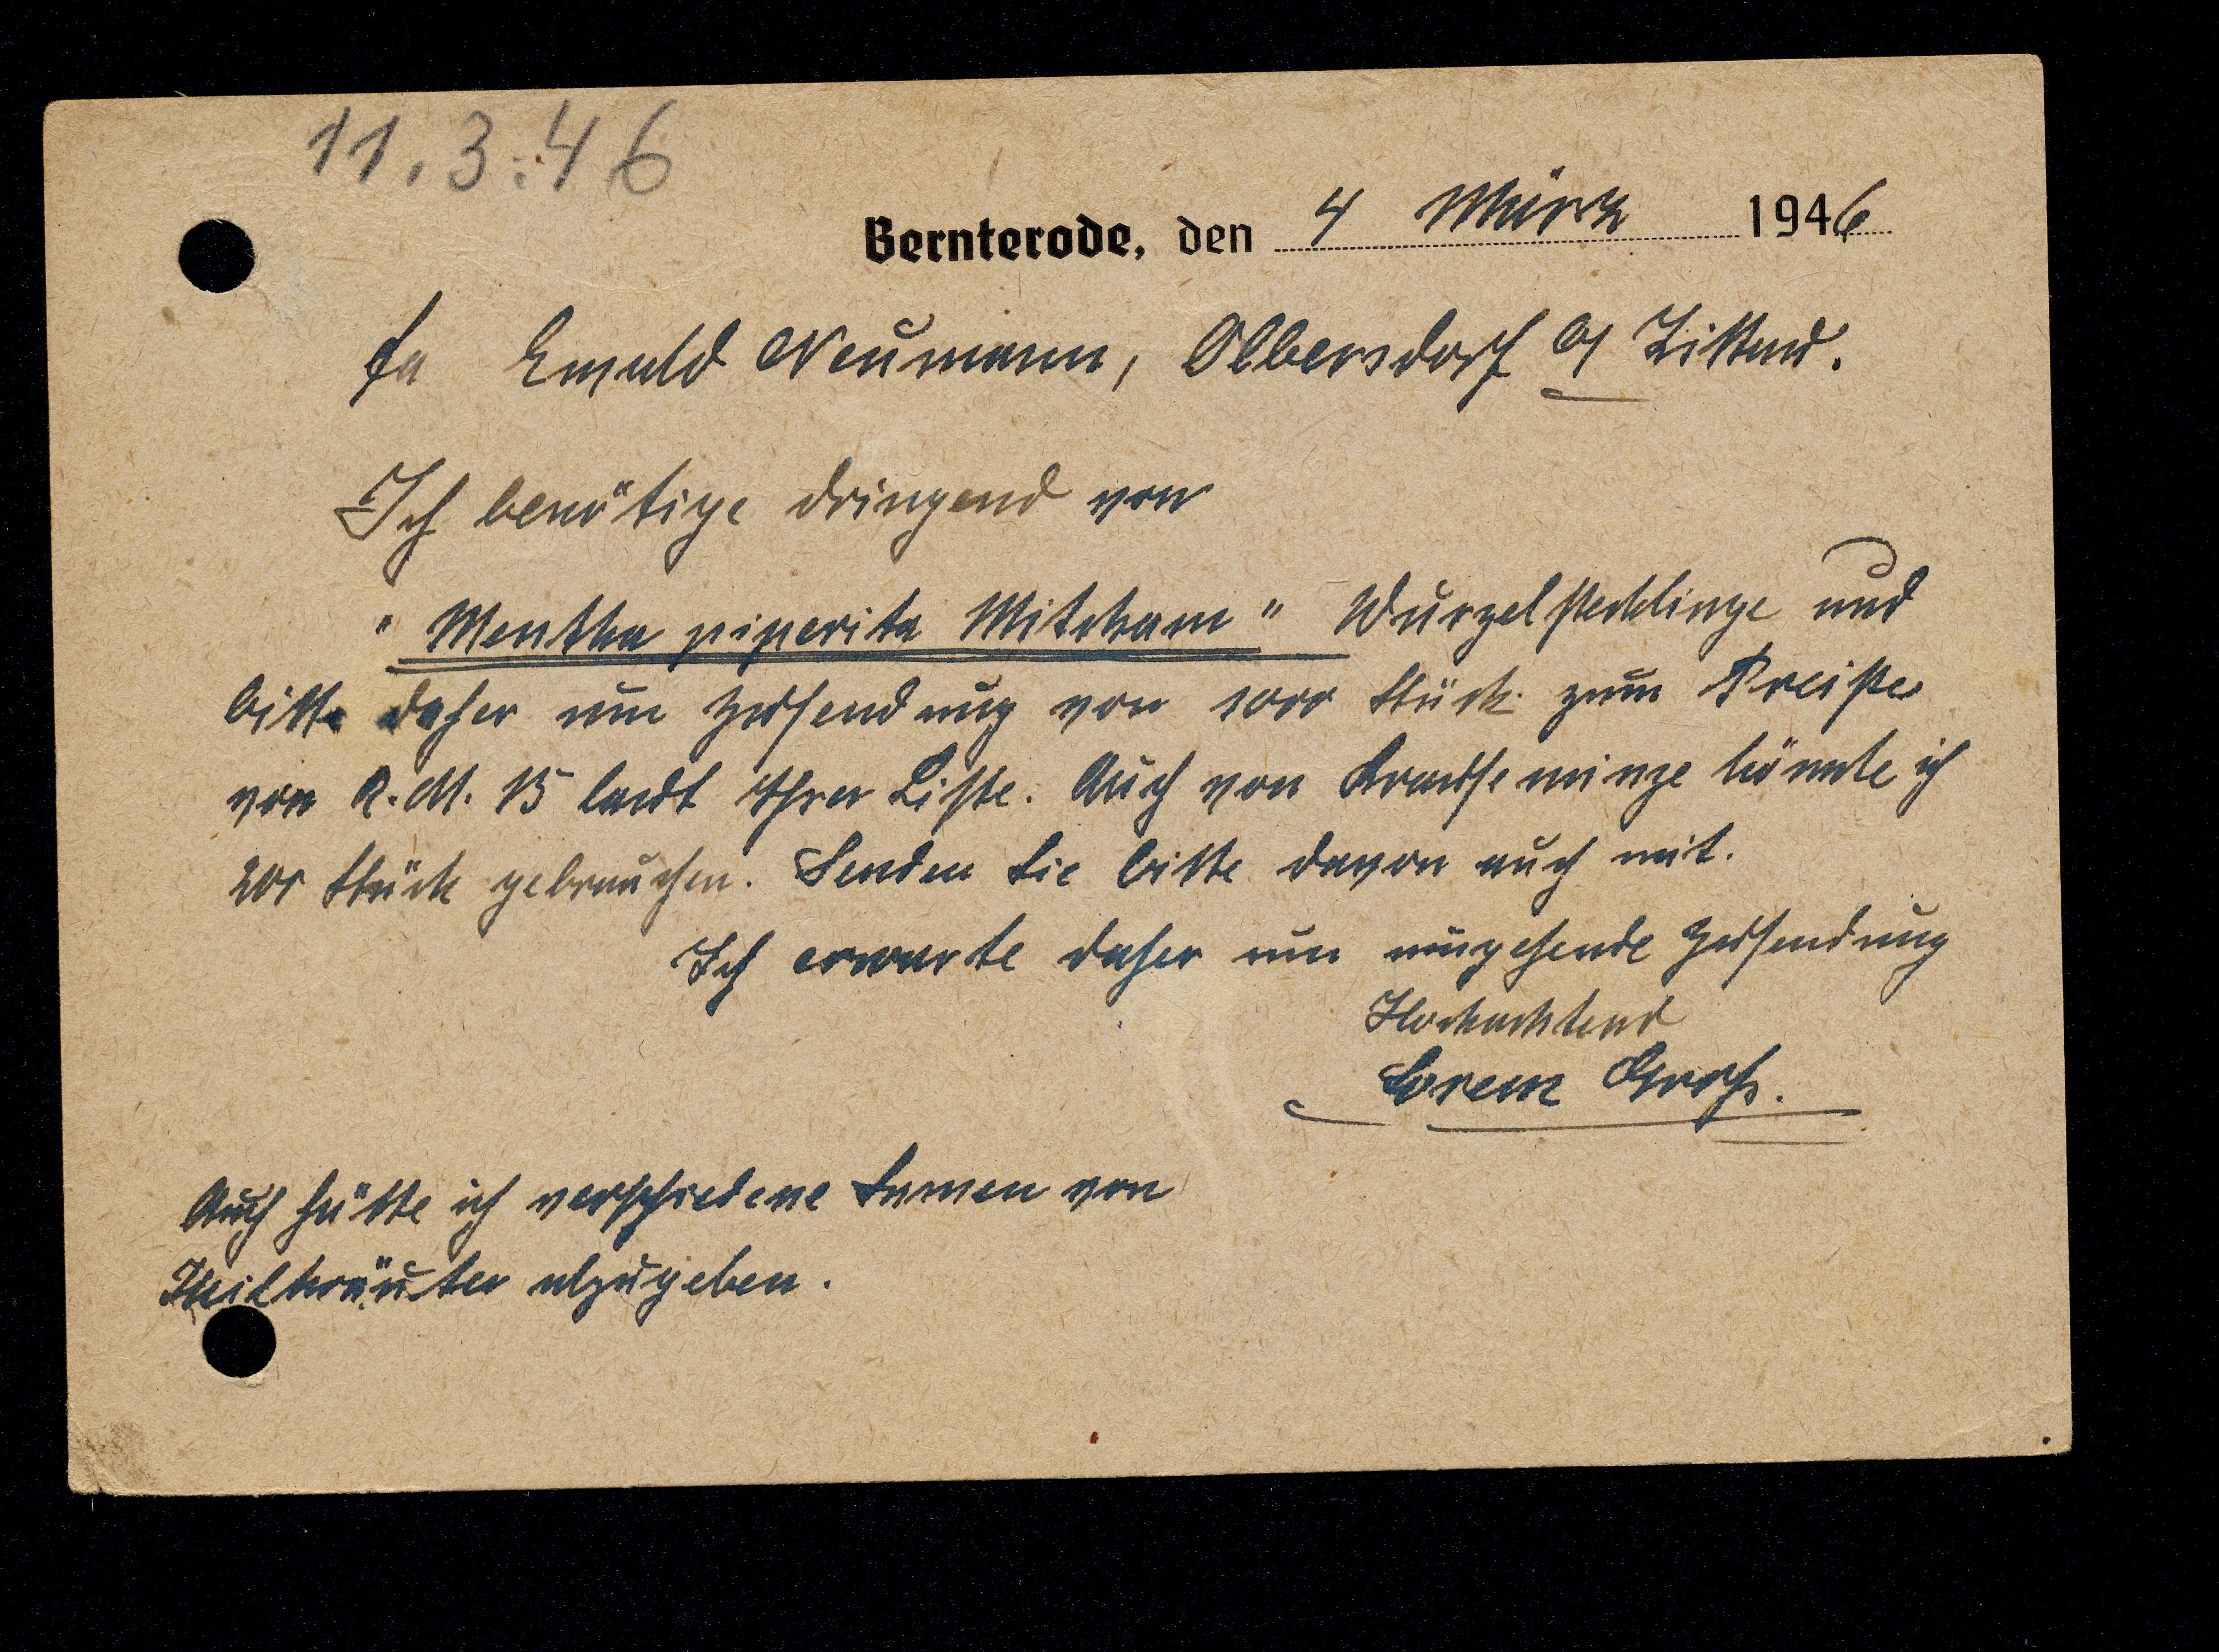 11.3.46
Bernterode, den 4 März 1946
Fa Ewald Neumann, Olbersdorf b/ Zittau.
Ich benötige dringend von
"Mentha piperita Mitcham" Wurzelstecklinge und
bitte daher um Zusendung von 1000 Stück zum Preise
von R.M. 15 laut Ihrer Liste. Auch von Krauseminze könnte ich
200 Stück gebrauchen. Senden Sie bitte davon auch mit.
Ich erwarte daher um umgehende Zusendung
Hochachtend
Lorenz Gross.
Auch hätte ich verschiedene Samen von
Heilkräuter abzugeben.